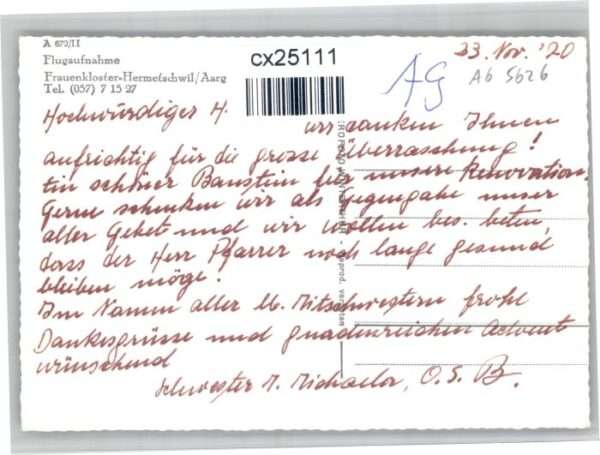 A 679/II
Flugaufnahme
Frauenkloster-Hermetschwil/Aarg
Tel. (057) 7 15 27
cx25111
AG
23. Nov. '20
A6 5626
Hochwürdiger H.
wir danken Ihnen
aufrichtig für die grosse Überraschung!
Ein schöner Baustein für unsere Renovation.
Gerne schenken wir als Gegengabe unser
aller Gebet und wir wollen bes. beten,
dass der Herr Pfarrer noch lange gesund
bleiben möge.
Im Namen aller lb. Mitschwestern frohe
Dankesgrüsse und gnadenreichen Advent
wünschend
Schwester M. Michaela, O.S.B.